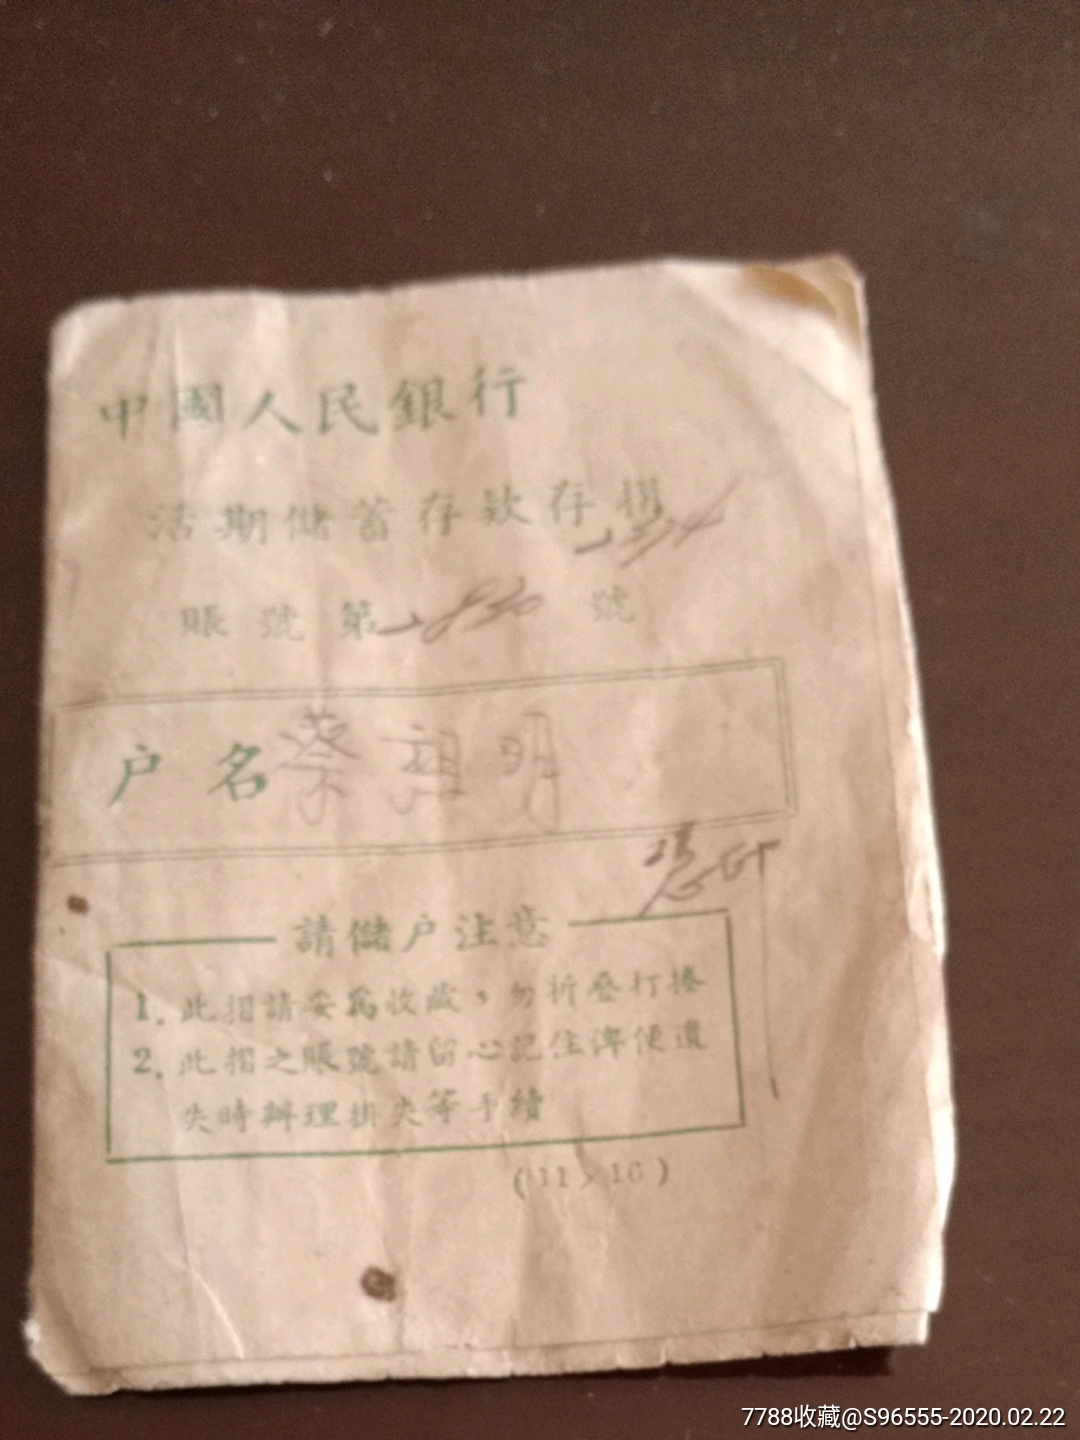 中國人民銀行
活期儲蓄存欵存摺
賬號第 830 號
户名 蔡 明
憑印
請儲户注意
1. 此摺請妥爲收藏，勿折叠打捲
2. 此摺之賬號請留心記住俾便遺
失時辦理掛失等手續
(11×16)
7788收藏@S96555-2020.02.22